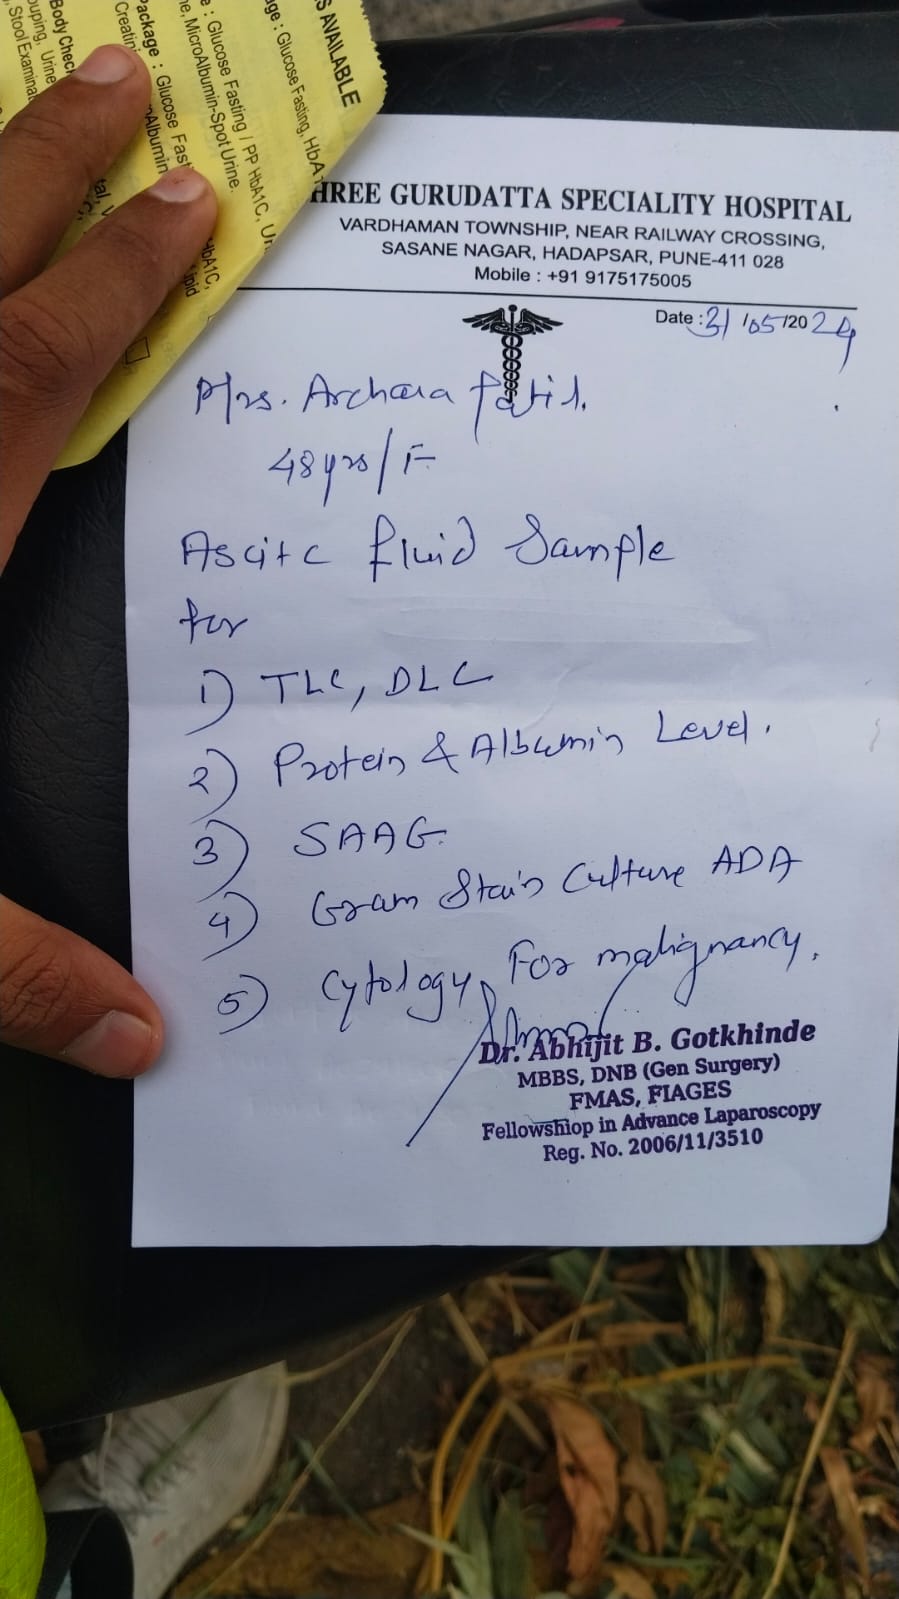 S AVAILABLE
age : Glucose Fasting, HbA1
e : Glucose Fasting / PP HbA1C, Ur
ne, MicroAlbumin-Spot Urine.
Package : Glucose Fast
Creatini
Albumin
Body Chec
ouping, Urine
, Stool Examinat
HbA1C,
ipid
HREE GURUDATTA SPECIALITY HOSPITAL
VARDHAMAN TOWNSHIP, NEAR RAILWAY CROSSING,
SASANE NAGAR, HADAPSAR, PUNE-411 028
Mobile : +91 9175175005
Date : 31/05/2024
Mrs. Archana Patil.
48yrs/F
Ascitc fluid Sample
for
1) TLC, DLC
2) Protein & Albumin Level.
3) SAAG.
4) Gram Stain Culture ADA
5) Cytology For malignancy.
Dr. Abhijit B. Gotkhinde
MBBS, DNB (Gen Surgery)
FMAS, FIAGES
Fellowshiop in Advance Laparoscopy
Reg. No. 2006/11/3510